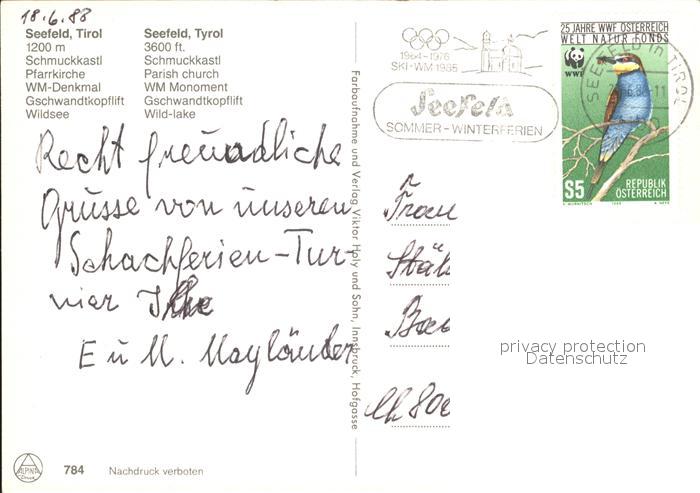 18.6.88
Seefeld, Tirol
1200 m
Schmuckkastl
Pfarrkirche
WM-Denkmal
Gschwandtkopflift
Wildsee
Seefeld, Tyrol
3600 ft.
Schmuckkastl
Parish church
WM Monument
Gschwandtkopflift
Wild-lake
Recht freundliche
Grüsse von unseren
Schachferien-Tur-
nier Ihre
E u M. Mayländer
Farbaufnahme und Verlag Viktor Holy und Sohn, Innsbruck, Hofgasse
1964-1976
SKI-WM 1985
Seefeld
SOMMER-WINTERFERIEN
25 JAHRE WWF ÖSTERREICH
WELT NATUR FONDS
WWF
SEEFELD in TIROL
S5
REPUBLIK
ÖSTERREICH
1988
Frau
Stäh
Ba
CH 80
privacy protection
Datenschutz
ALPINA
Druck
784
Nachdruck verboten